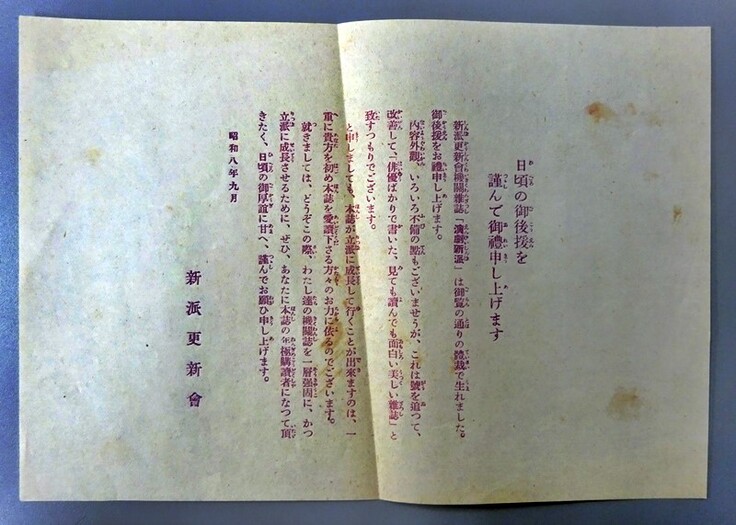 日頃の御後援を
謹んで御禮申し上げます
新派更新會機關雜誌「演劇新派」は御覧の通りの體裁で生れました。
御後援をお禮申し上げます。
内容外觀、いろいろ不備の點もございませうが、これは號を追つて、
改善して、「俳優ばかりで書いた、見ても讀んでも面白い美しい雜誌」と
致すつもりでございます。
と申しましても、本誌が立派に成長して行くことが出來ますのは、一
重に貴方を初め本誌を愛讀下さる方々のお力に依るのでございます。
就きましては、どうぞこの際、わたし達の機關誌を一層强固に、かつ
立派に成長させるために、ぜひ、あなたに本誌の年極購讀者になつて頂
きたく、日頃の御厚誼に甘へ、謹んでお願ひ申し上げます。
昭和八年九月
新派更新會